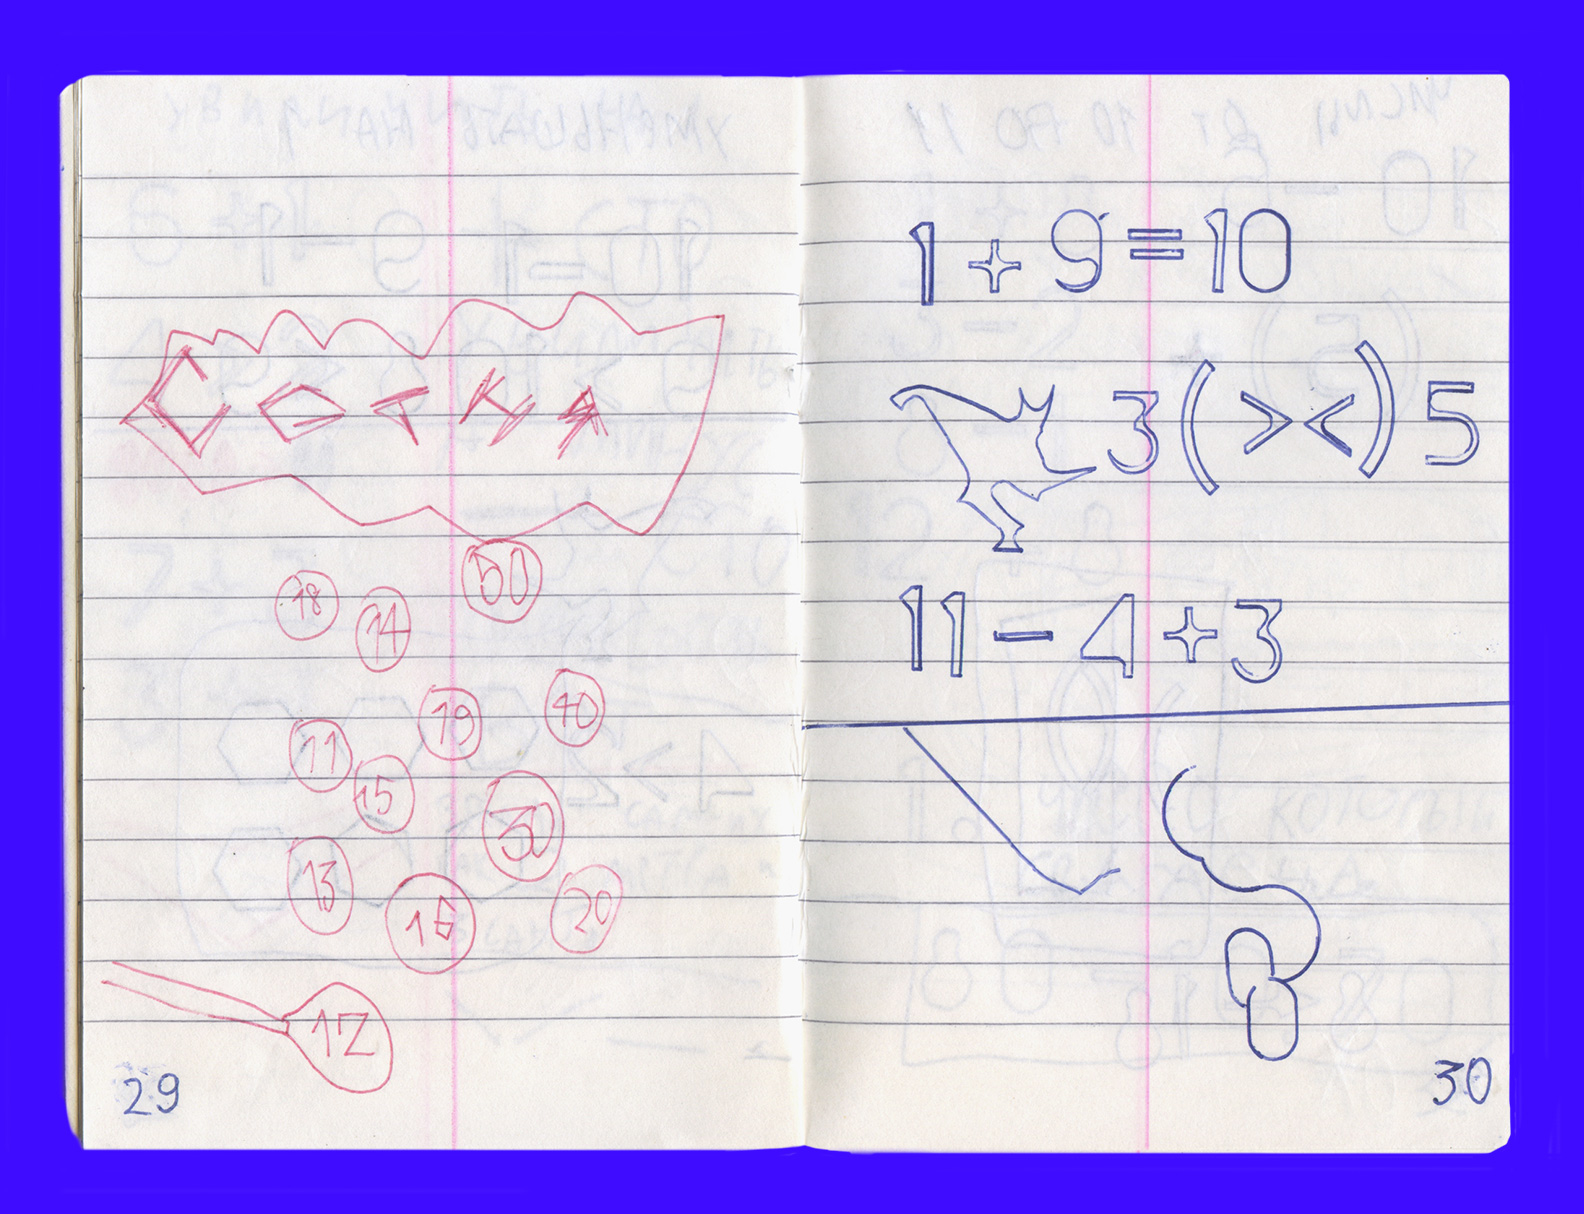 Сотня
50
18
14
19
40
11
15
30
13
16
20
12
29
1 + 9 = 10
3 ( > < ) 5
11 - 4 + 3
30